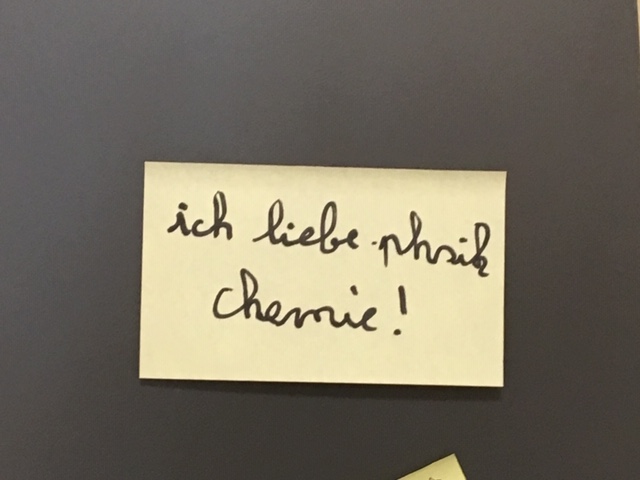 ich liebe phsik
chemie!